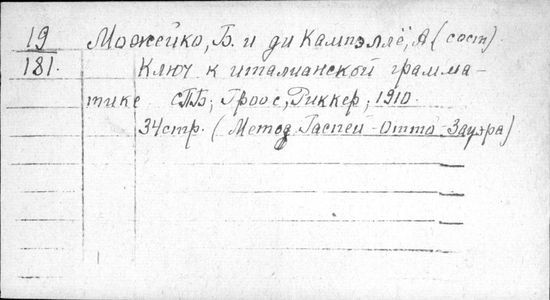 19 Можейко, Б. и ди Кампэллё, А (сост).
181. Ключ к италианской грамма-
тике СПБ; Гроос, Риккер, 1910.
34стр. (Метод Гаспей-Отто-Зауэра)